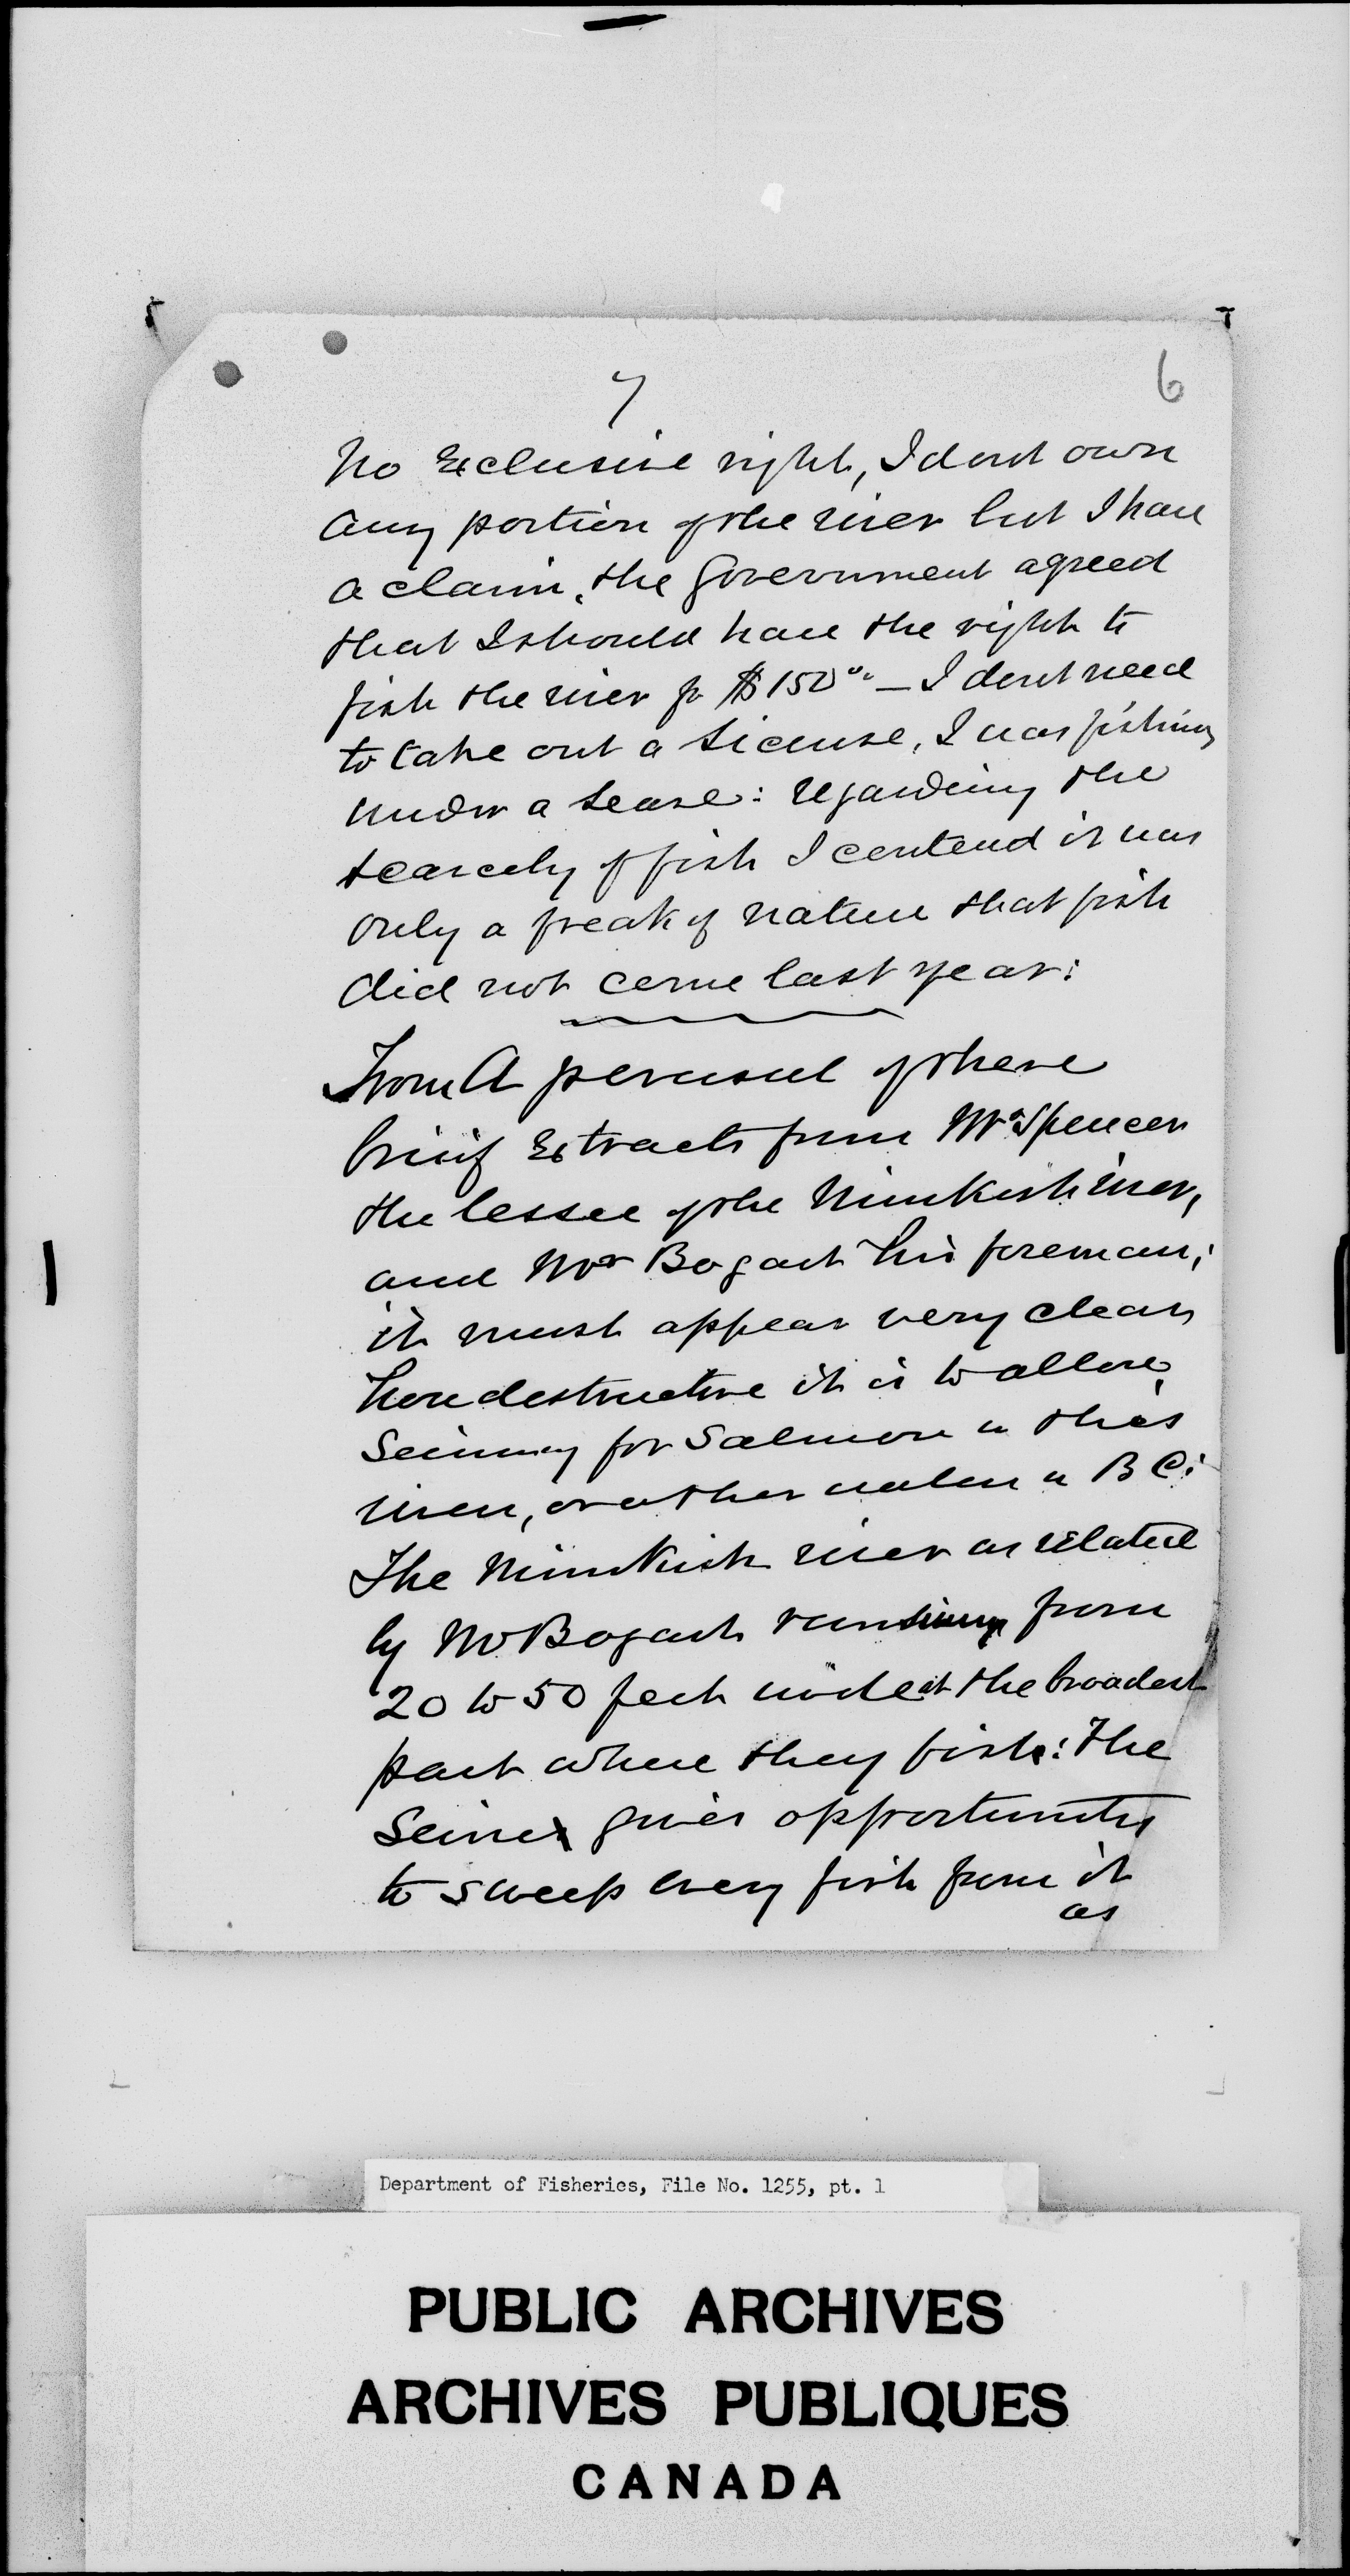 7
6
No Exclusive right, I dont own
any portion of the river but I have
a claim, the Government agreed
that I should have the right to
fish the river for $150.00 — I dont need
to take out a License, I was fishing
under a Lease: regarding the
scarcely of fish I contend it was
only a freak of nature that fish
did not come last year:
From A perusal of these
brief Extracts from Mr Spencer
the lessee of the Nimkish river,
and Mr Bogart his foreman;
it must appear very clear,
how destructive it is to allow
Seining for Salmon in this
river, or other waters in B C:
The Nimkish river as related
by Mr Bogart runs from
20 to 50 feet wide at the broadest
part where they fish: The
Seine gives opportunity
to sweep every fish from it
as
Department of Fisheries, File No. 1255, pt. 1
PUBLIC ARCHIVES
ARCHIVES PUBLIQUES
CANADA